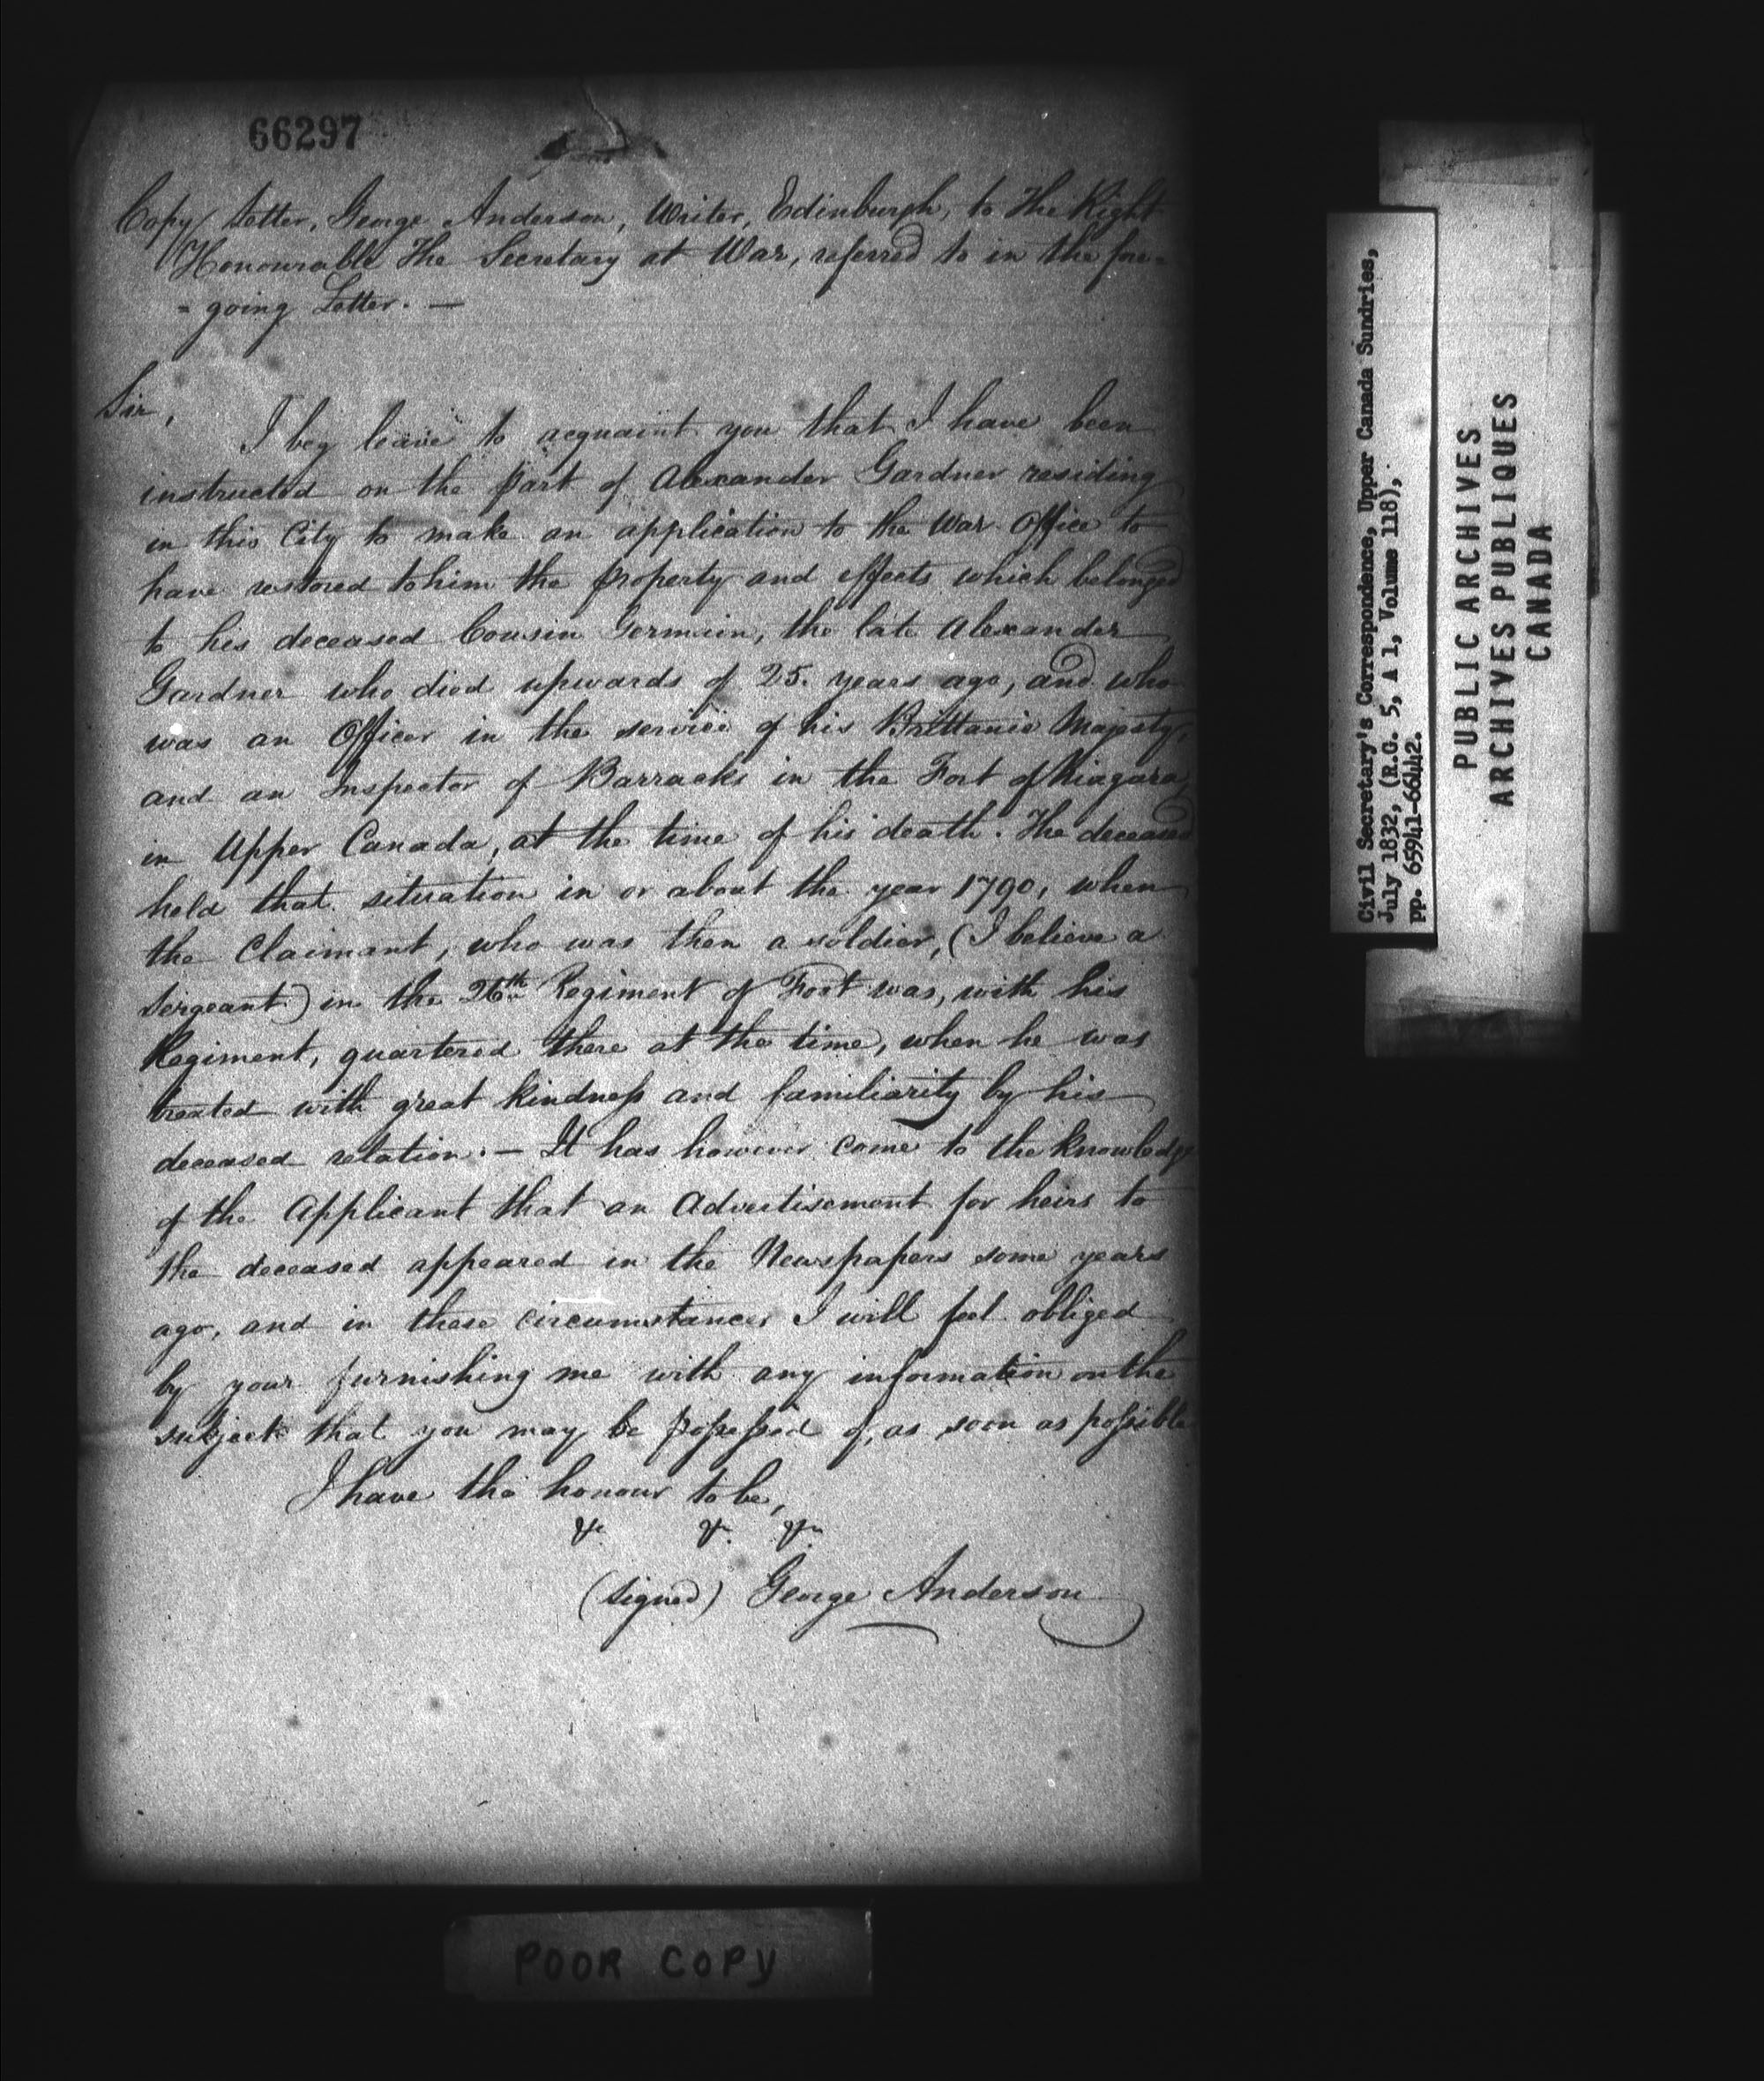 66297
Copy Letter, George Anderson, Writer, Edinburgh, to The Right
Honourable The Secretary at War, referred to in the fore=
=going Letter. —
Sir,
I beg leave to acquaint you that I have been
instructed on the part of Alexander Gardner residing
in this City to make an application to the War Office to
have restored to him the property and effects which belonged
to his deceased Cousin German, the late Alexander
Gardner who died upwards of 25. years ago, and who
was an Officer in the service of his Brittanic Majesty,
and an Inspector of Barracks in the Fort of Niagara
in Upper Canada, at the time of his death. The deceased
held that situation in or about the year 1790, when
the Claimant, who was then a soldier, (I believe a
Sergeant) in the 26th Regiment of Foot was, with his
Regiment, quartered there at the time, when he was
treated with great kindness and familiarity by his
deceased relation. — It has however come to the knowledge
of the Applicant that an Advertisement for heirs to
the deceased appeared in the Newspapers some years
ago, and in these circumstances I will feel obliged
by your furnishing me with any information on the
subject that you may be possessed of, as soon as possible
I have the honour to be,
&c. &c. &c.
(Signed) George Anderson
POOR COPY
Civil Secretary's Correspondence, Upper Canada Sundries,
July 1832, (R.G. 5, A 1, Volume 118),
pp. 65941-66442.
PUBLIC ARCHIVES
ARCHIVES PUBLIQUES
CANADA